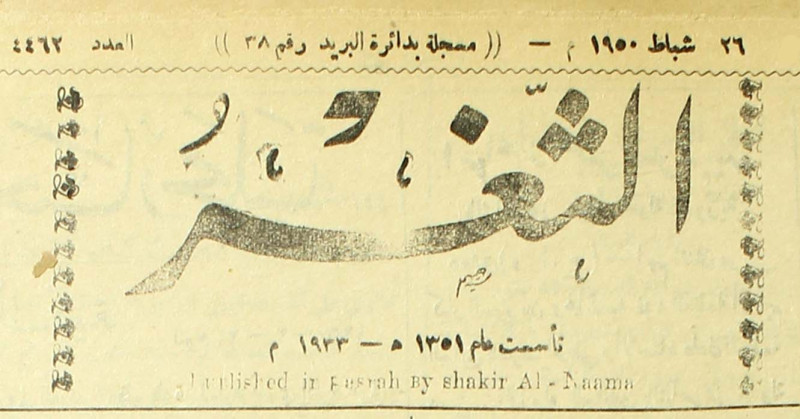 ٢٦ شباط ١٩٥٠ م — (( مسجلة بدائرة البريد رقم ٣٨ )) العدد ٤٤٦٢
الثَّغْرُ
تأسست عام ١٣٥١ ه — ١٩٣٣ م
Published in Basrah By shakir Al - Naama